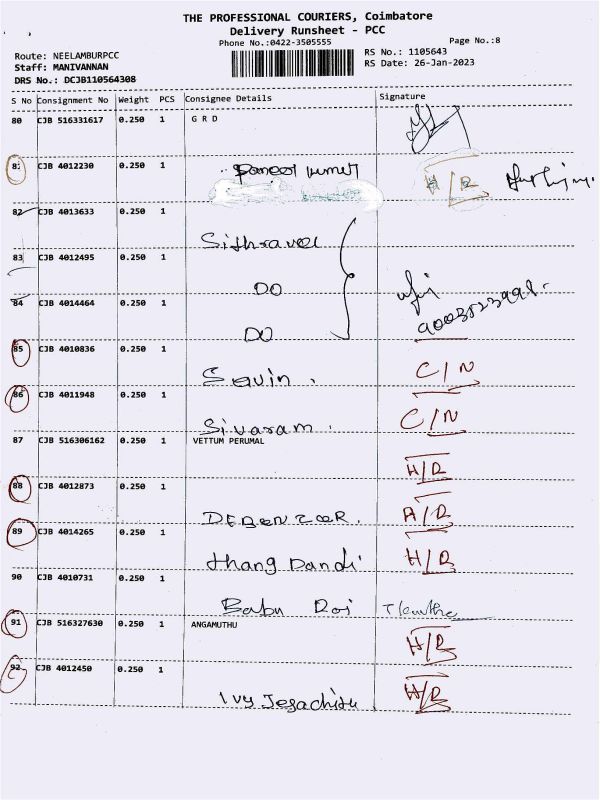 THE PROFESSIONAL COURIERS, Coimbatore
Delivery Runsheet - PCC
Phone No.:0422-3505555
Page No.:8
Route: NEELAMBURPCC
RS No.: 1105643
Staff: MANIVANNAN
RS Date: 26-Jan-2023
DRS No.: DCJB110564308
S No Consignment No Weight PCS Consignee Details Signature
80 CJB 516331617 0.250 1 G R D
81 CJB 4012230 0.250 1
H/R
82 CJB 4013633 0.250 1
Sithravel
83 CJB 4012495 0.250 1
DO
84 CJB 4014464 0.250 1
DO
85 CJB 4010836 0.250 1
Savin. C/N
86 CJB 4011948 0.250 1
Sivaram. C/N
87 CJB 516306162 0.250 1 VETTUM PERUMAL
H/R
88 CJB 4012873 0.250 1
A/R
89 CJB 4014265 0.250 1
Thang Pandi H/R
90 CJB 4010731 0.250 1
Babu Roi
91 CJB 516327630 0.250 1 ANGAMUTHU
H/R
92 CJB 4012450 0.250 1
Ivy H/R